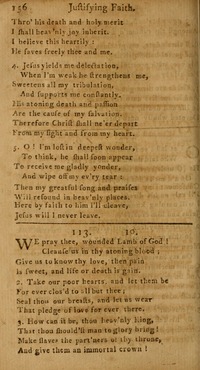 156 Justifying Faith.
Thro' his death and holy merit
I shall heav'nly joy inherit.
I believe this heartily:
He saves freely thee and me.
4. Jesus yields me delectation,
When I'm weak he strengthens me,
Sweetens all my tribulation,
And supports me constantly.
His atoning death and passion
Are the cause of my salvation.
Therefore Christ shall ne'er depart
From my sight and from my heart.
5. O! I'm lost in deepest wonder,
To think, he shall soon appear
To receive me gladly yonder,
And wipe off my ev'ry tear:
Then my greatful song and praises
Will resound in heav'nly places.
Here by faith to him I'll cleave,
Jesus will I never leave.
113. 10.
WE pray thee, wounded Lamb of God!
Cleanse us in thy atoning blood;
Give us to know thy love, then pain
Is sweet, and life or death is gain.
2. Take our poor hearts, and let them be
For ever clos'd to all but thee;
Seal thou our breasts, and let us wear
That pledge of love for ever there.
3. How can it be, thou heav'nly king,
That thou should'st man to glory bring!
Make slaves the part'ners of thy throne,
And give them an immortal crown!